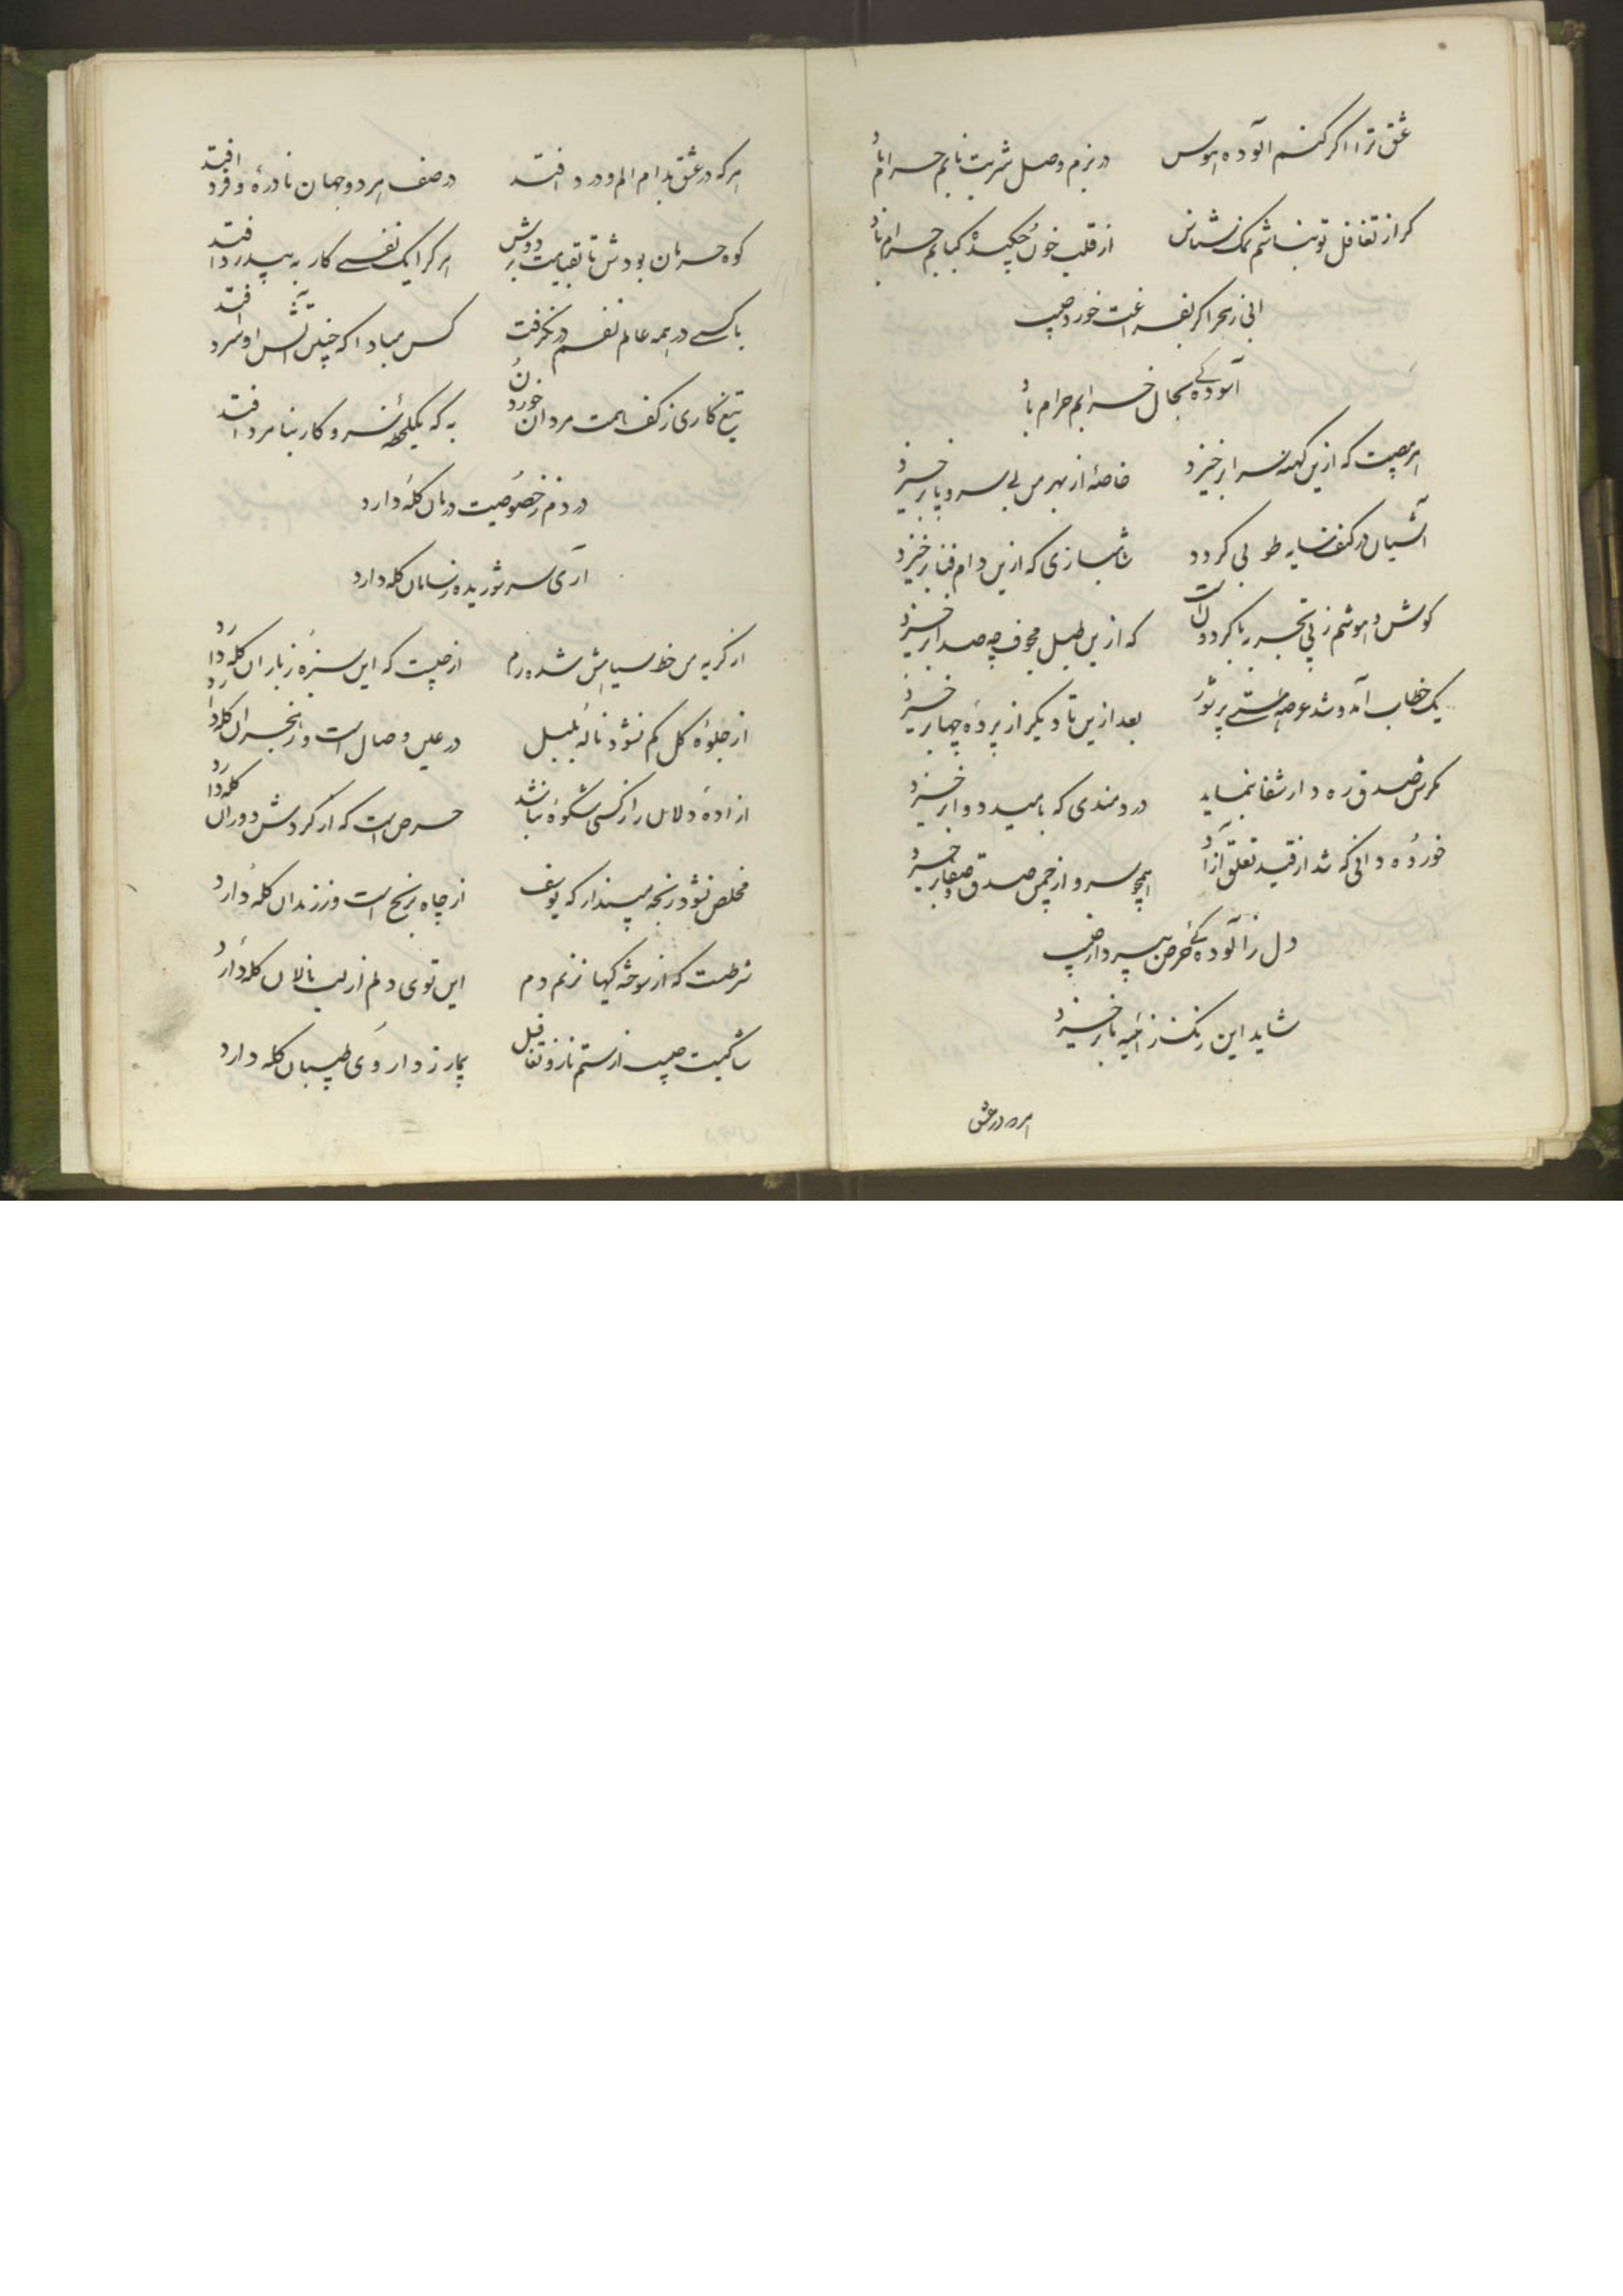 عشق ترا اگر کنم آلوده هوس در بزم وصل شربت نابم حرام باد
گر از تغافل تو نباشم نمک شناس از قلب خون چکیده کبابم حرام باد
آبی ز بحر اگر بفراغت خورد حبیب
آسوده‌گی بحال خرابم حرام باد
هر مصیبت که ازین کهنه سرا برخیزد خاصه از بهر من بی سر و پا برخیزد
آشیان در کنف سایه طوبی گردد شاهبازی که ازین دام فنا برخیزد
گوش و هوشم ز پی تجربه با گردون است که ازین طبل مجوف چه صدا برخیزد
یک خطاب آمد و شد عرصه هستی پر شور بعد ازین تا دیگر از پرده چها برخیزد
مکرش صدق ره دار شفا بنماید دردمندی که بامید دوا برخیزد
خورده دانی که شد از قید تعلق آزاد همچو سرو از چمن صدق و صفا برخیزد
دل ز آلوده‌گی حرص بپرداز حبیب
شاید این زنگ ز آئینه ما برخیزد
هر که در عشق
هر که در عشق بدام الم و درد افتد در صف هر دو جهان نادره و فرد افتد
کوه حرمان بودش تا بقیامت بر دوش هر کرا یک نفسی کار به بیدرد افتد
با کسی در همه عالم نفسم در نگرفت کس مبادا که چنین آتش او سرد افتد
تیغ کاری ز کف همت مردان خوردن به که یکلحظه سر و کار بنامرد افتد
دردم ز خصوصیت درمان گله دارد
آری سر شوریده ز سامان گله دارد
از گریه من خط سیاهش شده درهم از چیست که این سبزه ز باران گله دارد
از جلوه گل کم نشود ناله بلبل در عین وصال است و ز هجران گله دارد
آزاده دلان را ز کسی شکوه نباشد حرص است که از گردش دوران گله دارد
مخلص نشود رنجه مپندار که یوسف از چاه برنج است و ز زندان گله دارد
شرطست که از سوختگیها نزنم دم این توی دلم از لب نالان گله دارد
شاکیست حبیب از ستم ناز و تغافل بیمار ز داروی طبیبان گله دارد